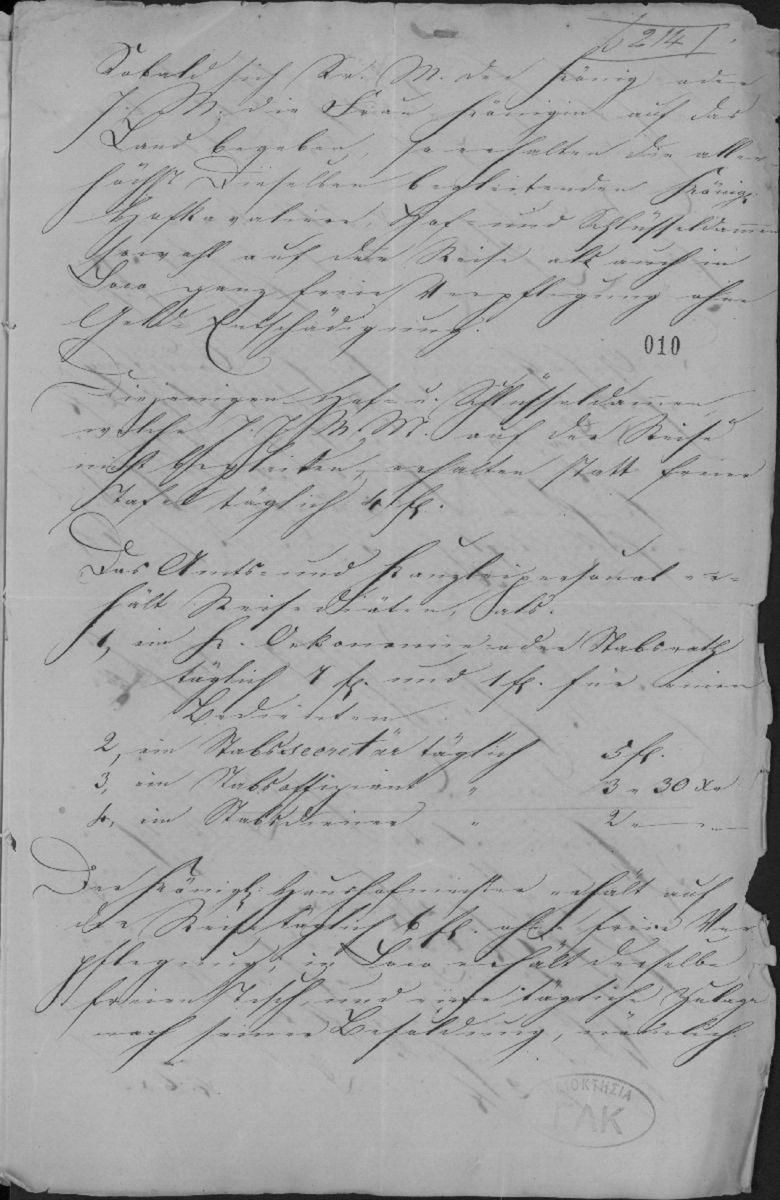 214
Sobald sich Sr. M. der König oder
I. M. die Frau Königin auf das
Land begeben, so erhalten die aller
höchst Dieselben begleitenden Königl.
Hofkavaliere, Hof- und Schlüsseldamen
sowohl auf der Reise als auch in
Loco ganz freie Verpflegung ohne
Geld-Entschädigung.
010
Diejenigen Hof- u. Schlüsseldamen,
welche I. I. M. M. auf der Reise
nicht begleiten, erhalten statt freier
Tafel täglich 4 fl.
Das Amts- und Kanzleipersonal er-
hält Reisediäten, als:
1, ein k. Oekonomie- oder Stabsrath
täglich 7 fl. und 1 fl. für einen
Bedienten
2, ein Stabssecretär täglich 5 fl.
3, ein Stabsoffiziant " 3 " 30 Xr
4, ein Stabsdiener " 2 " —
Der Königl. Haushofmeister erhält auf
der Reise täglich 6 fl. ohne freie Ver
pflegung, in Loco erhält derselbe
freien Tisch und eine tägliche Zulage
nach seiner Besoldung, nämlich
ΙΔΙΟΚΤΗΣΙΑ
ΓΑΚ